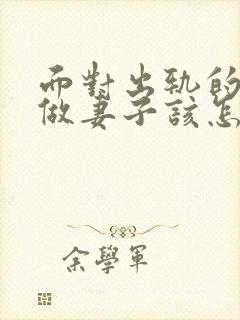 而對出軌的
做妻子該怎
余學軍